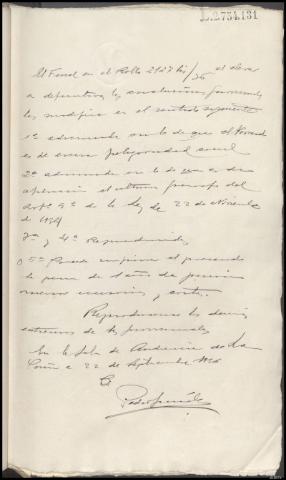 El Fiscal en el Rollo 2127 bis/36 al elevar
a definitivas las conclusiones provisionales
las modifica en el sentido siguiente
1ª adicionada en lo de que el Procesado
es de escasa peligrosidad social
2ª adicionada en lo de que es de
aplicación el último párrafo del
artº 9º de la Ley de 22 de Noviembre
de 1934
3ª y 4ª Reproducidas
5ª Procede imponer al procesado
la pena de 1 año de prisión
menor accesorias y costas.
Reproduciendo los demás
extremos de las provisionales
En la Sala de Audiencia de La
Coruña a 22 de Septiembre 1936